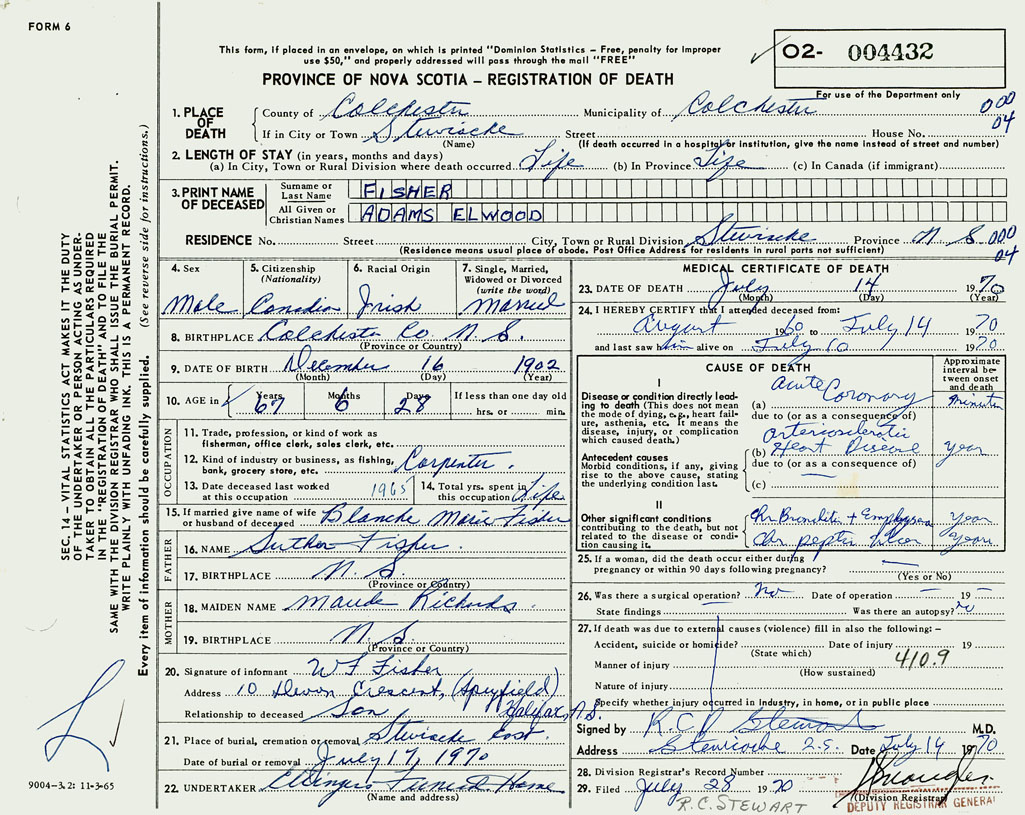 FORM 6
This form, if placed in an envelope, on which is printed "Dominion Statistics – Free, penalty for improper
use $50," and properly addressed will pass through the mail "FREE"
O2- 004432
For use of the Department only
PROVINCE OF NOVA SCOTIA – REGISTRATION OF DEATH
1. PLACE OF DEATH
County of Colchester Municipality of Colchester
000
04
If in City or Town Stewiacke Street House No.
(Name) (If death occurred in a hospital or institution, give the name instead of street and number)
2. LENGTH OF STAY (in years, months and days)
(a) In City, Town or Rural Division where death occurred Life (b) In Province Life (c) In Canada (if immigrant)
3. PRINT NAME OF DECEASED
Surname or Last Name FISHER
All Given or Christian Names ADAMS ELWOOD
RESIDENCE No. Street City, Town or Rural Division Stewiacke Province N S 000
04
(Residence means usual place of abode. Post Office Address for residents in rural parts not sufficient)
4. Sex
Male
5. Citizenship
(Nationality)
Canadian
6. Racial Origin
Irish
7. Single, Married,
Widowed or Divorced
(write the word)
Married
8. BIRTHPLACE Colchester Co N. S.
(Province or Country)
9. DATE OF BIRTH December 16 1902
(Month) (Day) (Year)
10. AGE in Years 67 Months 6 Days 28 If less than one day old
hrs. or min.
OCCUPATION
11. Trade, profession, or kind of work as
fisherman, office clerk, sales clerk, etc.
12. Kind of industry or business, as fishing,
bank, grocery store, etc. Carpenter.
13. Date deceased last worked
at this occupation 1965
14. Total yrs. spent in
this occupation Life
15. If married give name of wife
or husband of deceased Blanche Marie Fisher
FATHER
16. NAME Fisher.
17. BIRTHPLACE N. S.
(Province or Country)
MOTHER
18. MAIDEN NAME Maude Richards.
19. BIRTHPLACE N. S.
(Province or Country)
20. Signature of informant W F Fisher
Address 10 Devon Crescent, (Spryfield)
Halifax, N.S.
Relationship to deceased Son
21. Place of burial, cremation or removal Stewiacke East.
Date of burial or removal July 17, 1970
22. UNDERTAKER Funeral Home
(Name and address)
MEDICAL CERTIFICATE OF DEATH
23. DATE OF DEATH July 14 1970
(Month) (Day) (Year)
24. I HEREBY CERTIFY that I attended deceased from:
August 1960 to July 14 1970
and last saw him alive on July 10 1970
CAUSE OF DEATH
Approximate
interval be-
tween onset
and death
I
Disease or condition directly lead-
ing to death (This does not mean
the mode of dying, e.g., heart fail-
ure, asthenia, etc. It means the
disease, injury, or complication
which caused death.)
Acute
(a) Coronary minutes
due to (or as a consequence of)
Arteriosclerotic
(b) Heart Disease year
Antecedent causes
Morbid conditions, if any, giving
rise to the above cause, stating
the underlying condition last.
due to (or as a consequence of)
(c)
II
Other significant conditions
contributing to the death, but not
related to the disease or condi-
tion causing it.
Chr Bronchitis + Emphysema Year
Chr peptic Ulcer Years
25. If a woman, did the death occur either during
pregnancy or within 90 days following pregnancy?
(Yes or No)
26. Was there a surgical operation? No Date of operation – 19 –
State findings Was there an autopsy? No
27. If death was due to external causes (violence) fill in also the following: –
Accident, suicide or homicide? Date of injury 19
(State which)
410.9
Manner of injury
(How sustained)
Nature of injury
Specify whether injury occurred in Industry, in home, or in public place
Signed by R.C. Stewart M.D.
Address Stewiacke N.S. Date July 14 1970
28. Division Registrar's Record Number
29. Filed July 28 1970
(Division Registrar)
R.C. STEWART
DEPUTY REGISTRAR GENERAL
SEC. 14 – VITAL STATISTICS ACT MAKES IT THE DUTY
OF THE UNDERTAKER OR PERSON ACTING AS UNDER-
TAKER TO OBTAIN ALL THE PARTICULARS REQUIRED
IN THE "REGISTRATION OF DEATH" AND TO FILE THE
SAME WITH THE DIVISION REGISTRAR WHO SHALL ISSUE THE BURIAL PERMIT.
WRITE PLAINLY WITH UNFADING INK. THIS IS A PERMANENT RECORD.
Every item of information should be carefully supplied. (See reverse side for instructions.)
9004-3.2: 11-3-65